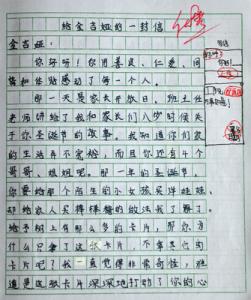 给金吉娅的一封信
金吉娅：
你好呀！你用善良、仁爱、同
情和体贴感动了每一个人。
那一天是家长开放日，班主任
老师讲给了我和家长们八岁时侯关
于你圣诞节的故事。我知道你们家
的生活并不宽裕，而且你还有4个
哥哥、姐姐吧。那一年的圣诞节，
你要给那个陌生的小女孩买洋娃娃，
却给家人买棒棒糖的做法我了解了。
给予树上有那么多的卡片，那你为
什么只拿了这张卡片，不拿其它的
卡片呢？我一直觉得非常奇怪，难
道是这张卡片深深地打动了你的心